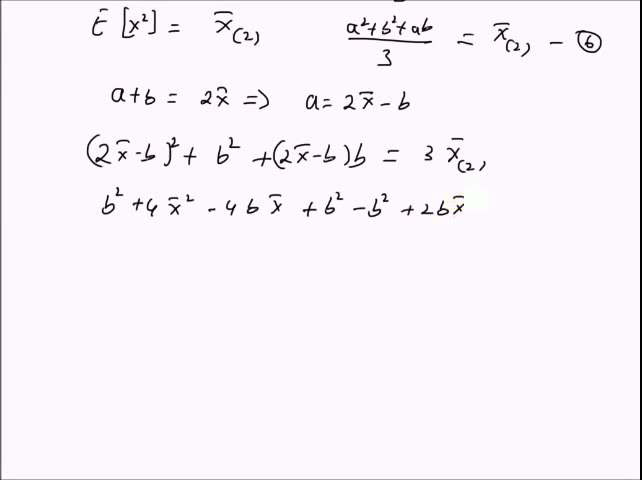 E [x²] = x̄₍₂₎   (a²+b²+ab)/3 = x̄₍₂₎ - ⑥
a+b = 2x̄ => a = 2x̄ - b
(2x̄-b)² + b² + (2x̄-b)b = 3 x̄₍₂₎
b² + 4x̄² - 4bx̄ + b² - b² + 2bx̄